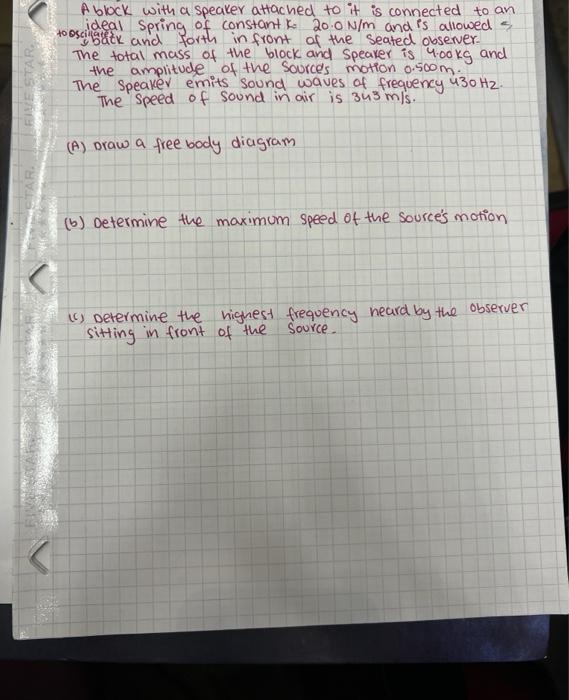 A block with a speaker attached to it is connected to an
ideal spring of constant k 20.0 N/m and is allowed
to oscillate back and forth in front of the seated observer.
The total mass of the block and speaker is 4.00kg and
the amplitude of the source's motion 0.500m.
The speaker emits sound waves of frequency 430 Hz.
The speed of sound in air is 343 m/s.
(A) Draw a free body diagram
(b) Determine the maximum speed of the source's motion
(c) Determine the highest frequency heard by the observer
sitting in front of the source.